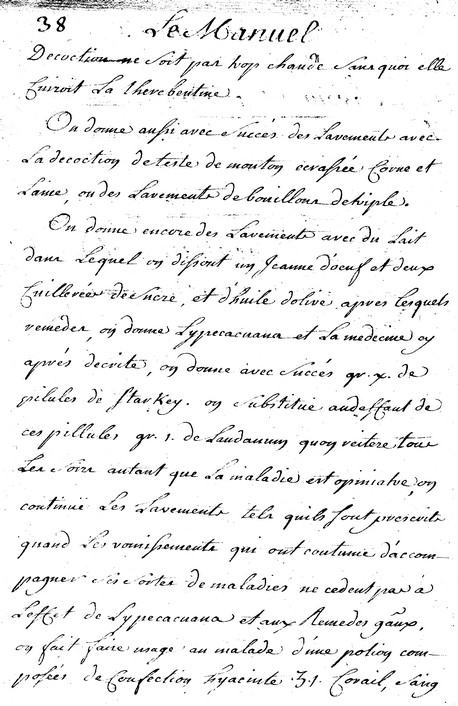 38 Le Manuel
Decoction ne soit par trop chaude sans quoi elle
Cuiroit La therebentine.
On donne aussi avec Succés des Lavements avec
La decoction de teste de mouton ecrasée Corne et
Laine, ou des Lavements de bouillons de triple.
On donne encore des Lavements avec du Lait
dans Lequel on dissout un Jeanne d'oeuf et deux
Cuillerées de Sucre, et d'huile dolive, apres lesquels
remedes, on donne Lypecacuana et La medecine cy
aprés decrite, on donne avec Succés gr. x. de
pilules de StarKey. on Substitue audeffaut de
ces pillules gr. 1. de Laudanum quon reitere tous
Les Soirs autant que La maladie est opiniatre, on
continuë Les Lavements tels quils Sont prescrits
quand Les vomissements qui ont coutume d'accom-
pagner Ses Sortes de maladies ne cedent pas à
Leffet de Lypecacuana et aux Remedes gñaux,
on fait faire usage au malade d'une potion com-
posées de Confection hyacinte ʒ.1. Corail, Sang